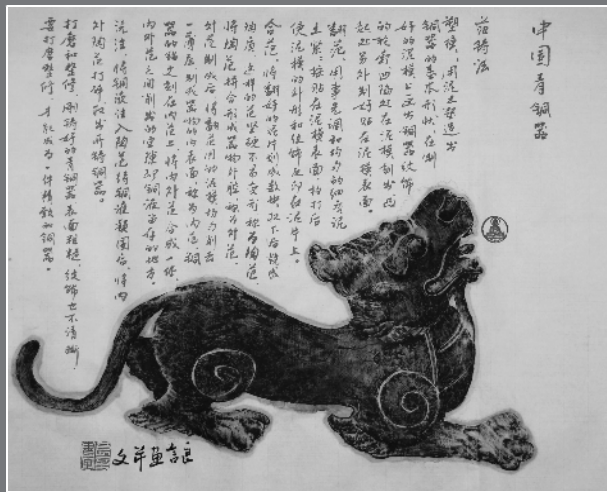 中国青铜器
范铸法
塑模,用泥土塑造出
铜器的基本形状,在制
好的泥模上画出铜器纹饰
的轮廓凹陷处在泥模刻出凸
起处另外制好贴在泥模表面。
翻范,用事先调和均匀的细质泥
土紧紧按贴在泥模表面拍打后
使泥模的外形和纹饰反印在泥片上
合范,将翻好的泥片划成数块取下后烧成
陶质,这样的范坚硬不易变形称为陶范,
将陶范拼合形成器物外腔称为外范,
外范制成后将翻范用的泥模均匀刮去
一薄层制成器物的内表面称为内范铜
器的铭文刻在内范上将内外范合成一体,
内外范之间削出的空隙即铜液留存的地方。
浇注 将铜液注入陶范待铜液凝固后,将内
外陶范打碎,取出所铸铜器。
打磨和整修,刚铸好的青铜器表面粗糙,纹饰也不清晰,
需打磨整修,才能成为一件精致的铜器。
画并文